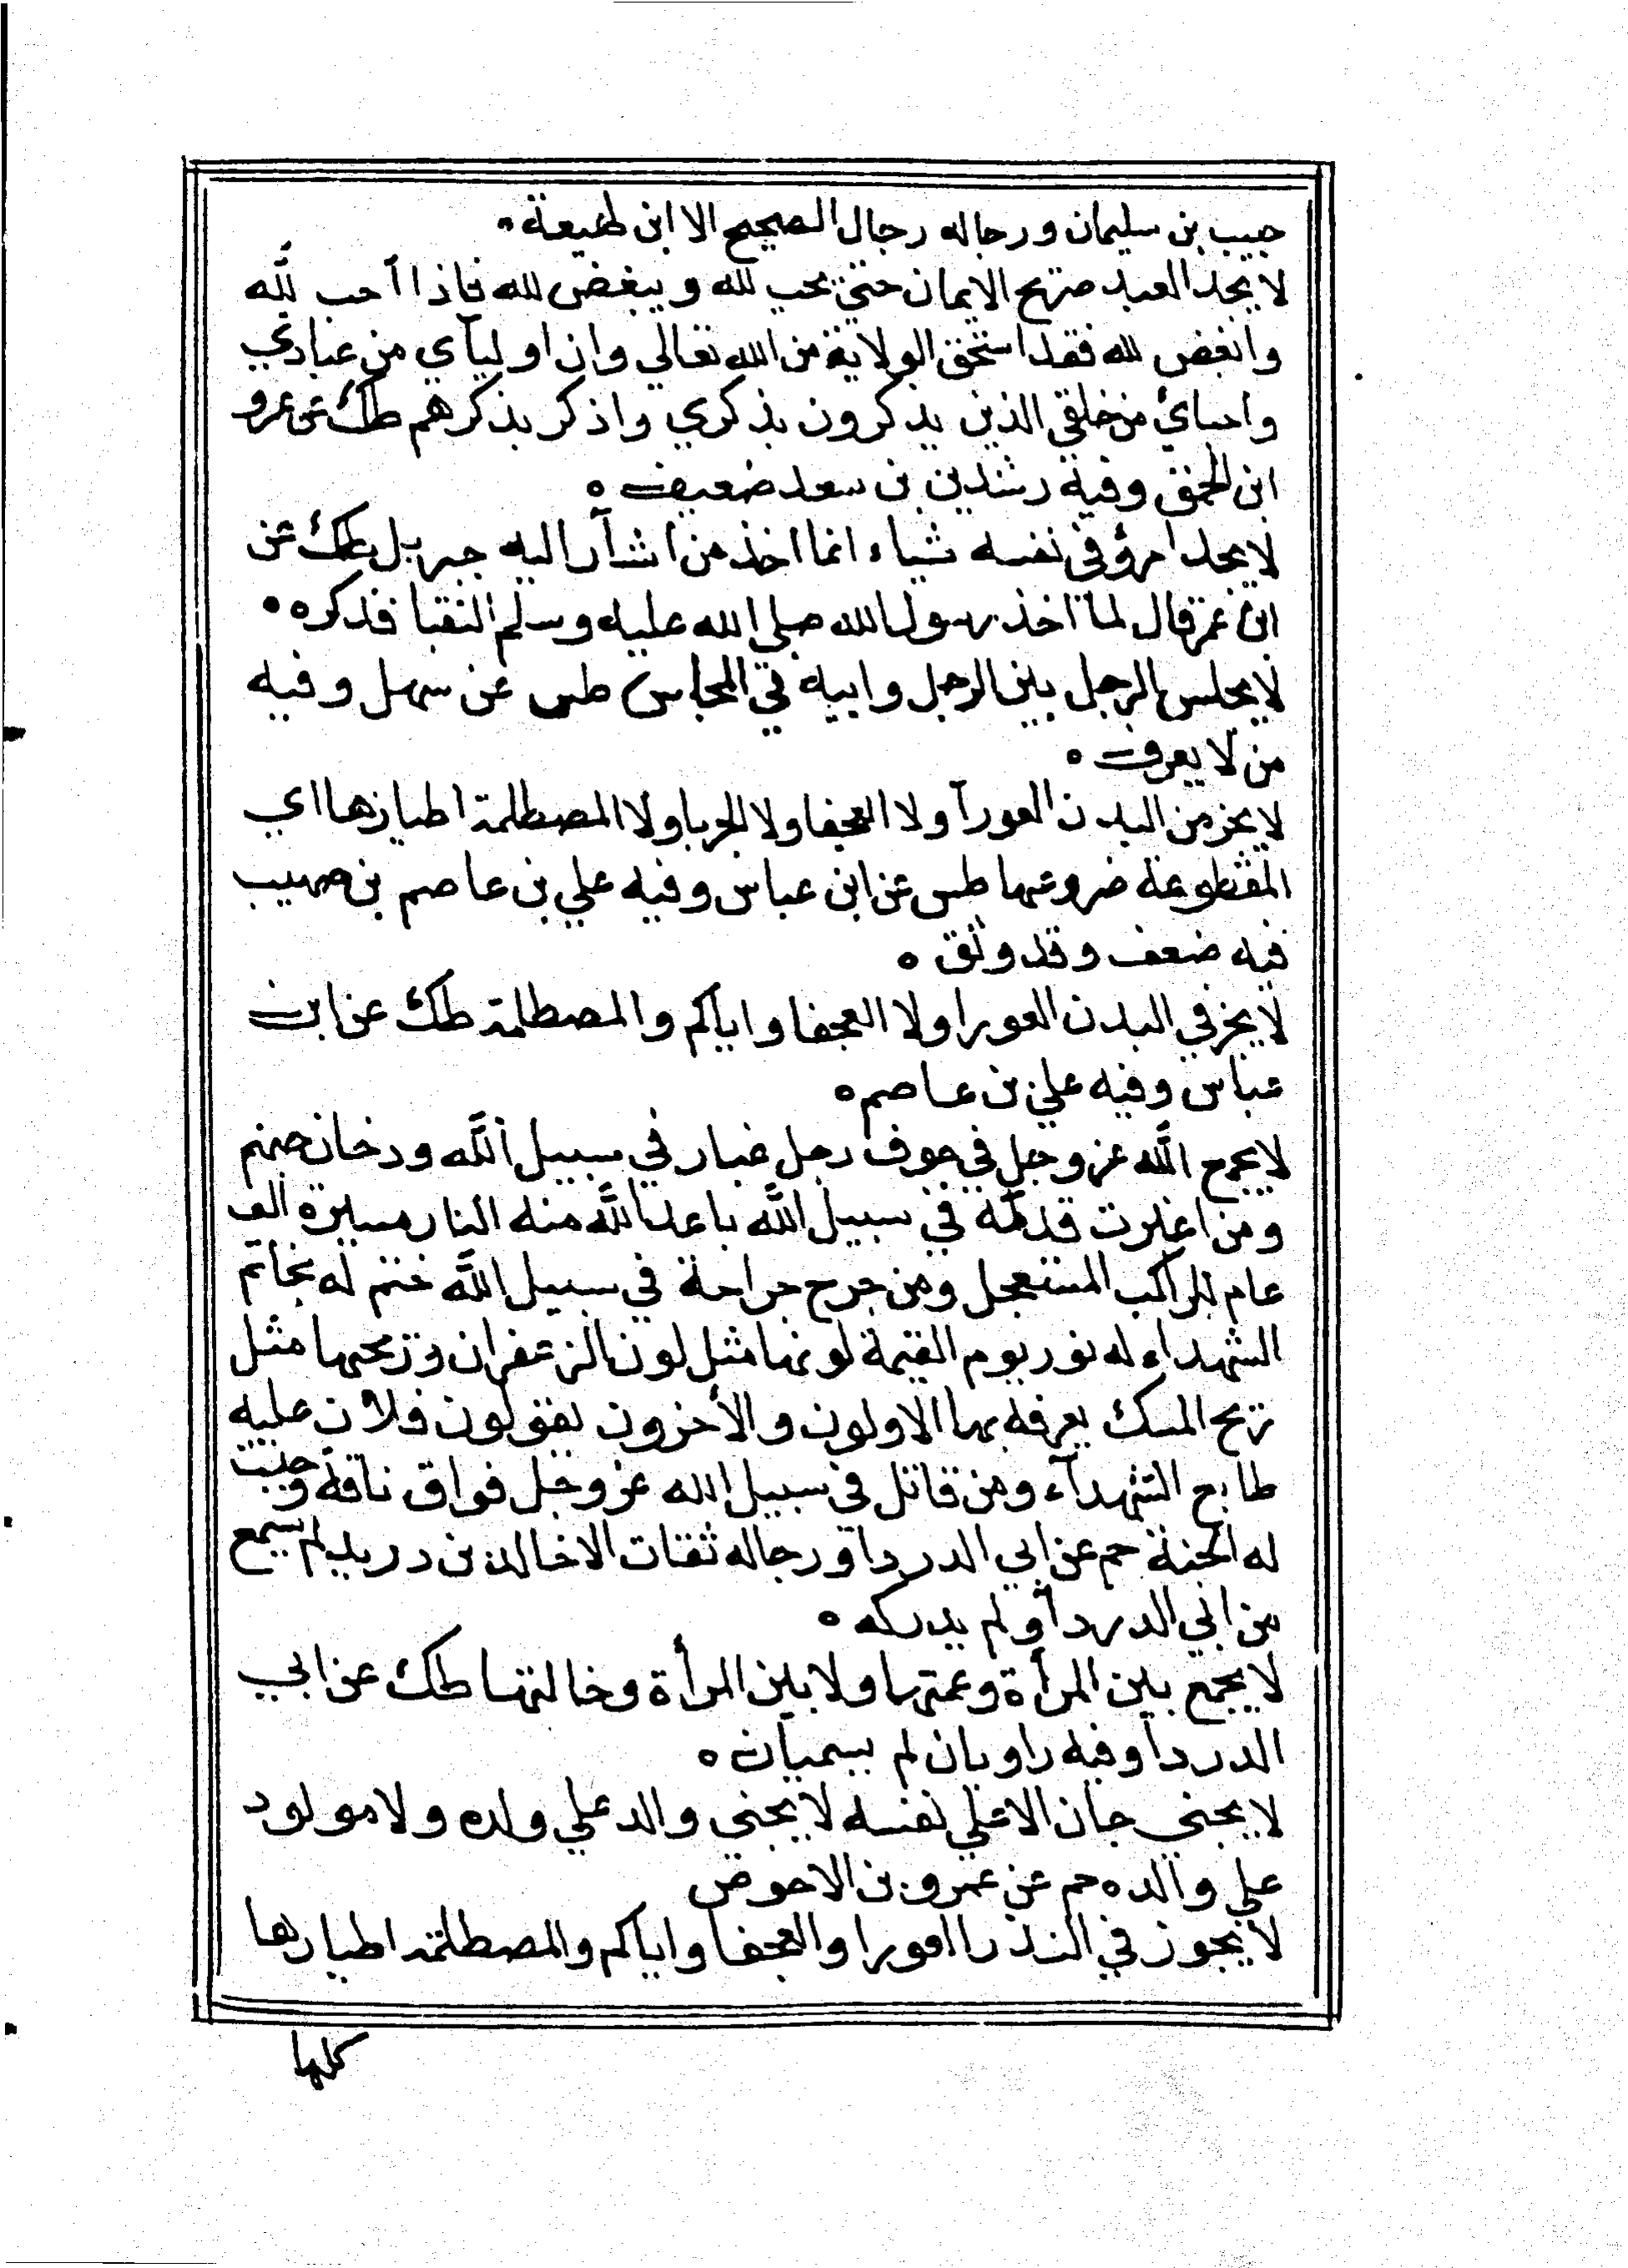 حبيب بن سليمان ورجاله رجال الصحيح الا ابن لهيعة ه
لا يجد العبد صريح الايمان حتى يحب لله ويبغض لله فاذا أحب لله
وابغض لله فقد استحق الولاية من الله تعالي وان اوليآي من عبادي
واحبائي من خلقي الذين يذكرون بذكري واذكر بذكرهم طك عن عمرو
ابن الحمق وفيه رشدين بن سعد ضعيف ه
لا يجد امرؤ في نفسه شياء انما اخذ من اشآر اليه جبريل طك عن
ابن عمر قال لما اخذ رسول الله صلي الله عليه وسلم النقبا فذكره ه
لا يجلس الرجل بين الرجل وابيه في المجلس طس عن سهل وفيه
من لا يعرف ه
لا يجز من البدن العورآ ولا العجفا ولا الجربا ولا المصطلمة اطباؤها اي
المقطوعة ضروعها طس عن ابن عباس وفيه علي بن عاصم بن صهيب
فيه ضعف وقد وثق ه
لا يجز في البدن العورا ولا العجفا واياكم والمصطلمة طك عن ابن
عباس وفيه علي بن عاصم ه
لا يجمع الله عز وجل في جوف رجل غبار في سبيل الله ودخان جهنم
ومن اغبرت قدماه في سبيل الله باعد الله منه النار مسيرة الف
عام للراكب المستعجل ومن جرح جراحة في سبيل الله ختم له بخاتم
الشهداء له نور يوم القيمة لونها مثل لون الزعفران وريحها مثل
ريح المسك يعرفه بها الاولون والأخرون يقولون فلان عليه
طابع الشهدآء ومن قاتل في سبيل الله عز وجل فواق ناقة وجبت
له الجنة حم عن ابي الدردا ورجاله ثقات الا خالد بن دريد لم يسمع
من ابي الدردا ولم يدركه ه
لا يجمع بين المرأة وعمتها ولا بين المرأة وخالتها طك عن ابي
الدردا وفيه راويان لم يسميان ه
لا يجني جان الا علي نفسه لا يجني والد علي ولده ولا مولود
علي والده حم عن عمرو بن الاحوص
لا يجوز في النذر العورا والعجفا واياكم والمصطلمة اطباؤها
كلها